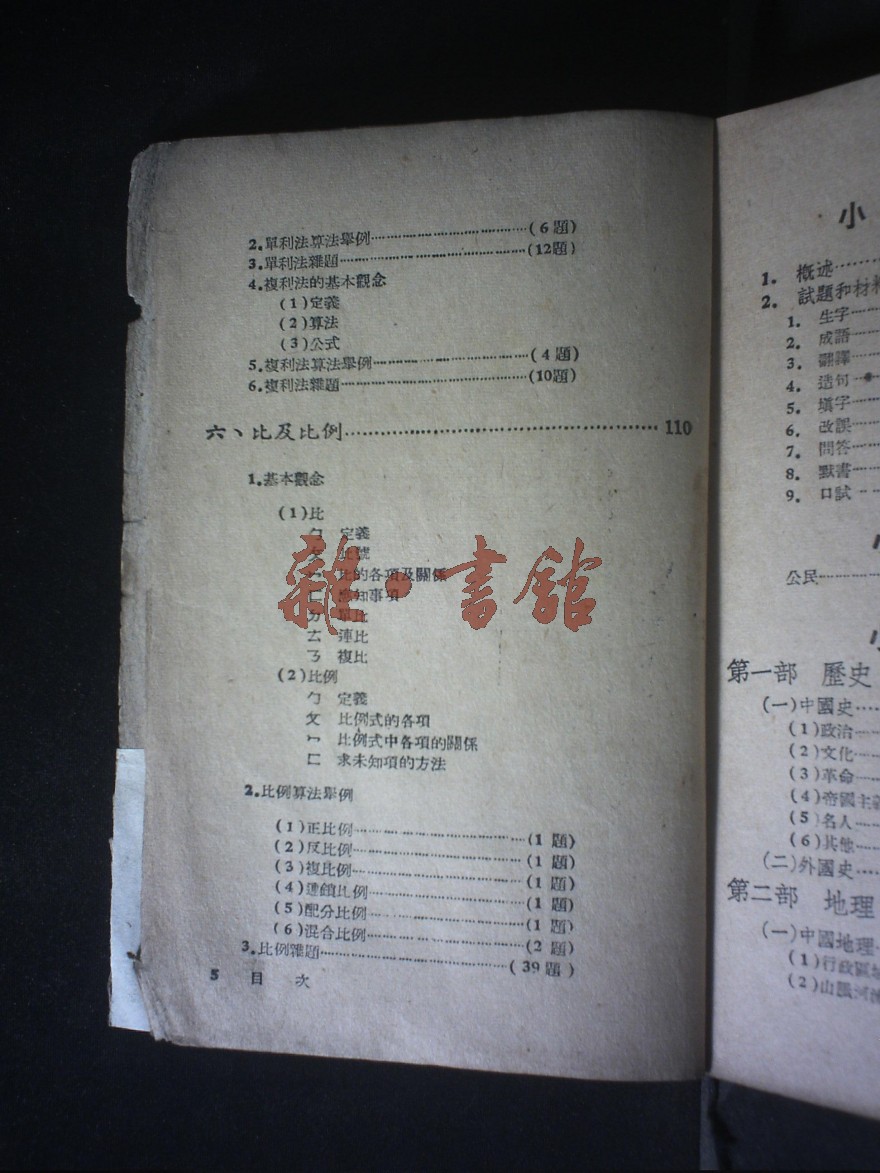 2.單利法算法舉例……(6題)
3.單利法雜題……(12題)
4.複利法的基本觀念
(1)定義
(2)算法
(3)公式
5.複利法算法舉例……(4題)
6.複利法雜題……(10題)
六、比及比例……110
1.基本觀念
(1)比
ㄅ 定義
ㄆ 比號
ㄇ 比的各項及關係
ㄈ 應知事項
ㄉ 單比
ㄊ 連比
ㄋ 複比
(2)比例
ㄅ 定義
ㄆ 比例式的各項
ㄇ 比例式中各項的關係
ㄈ 求未知項的方法
2.比例算法舉例
(1)正比例……(1題)
(2)反比例……(1題)
(3)複比例……(1題)
(4)連鎖比例……(1題)
(5)配分比例……(1題)
(6)混合比例……(2題)
3.比例雜題……(39題)
5 目次
雜·書館
小
1. 概述……
2. 試題和材料
1. 生字……
2. 成語……
3. 翻譯……
4. 造句……
5. 填字……
6. 改誤……
7. 問答……
8. 默書……
9. 口試……
公民……
第一部 歷史
(一)中國史……
(1)政治……
(2)文化……
(3)革命……
(4)帝國主義
(5)名人……
(6)其他……
(二)外國史……
第二部 地理
(一)中國地理……
(1)行政區域
(2)山脈河流